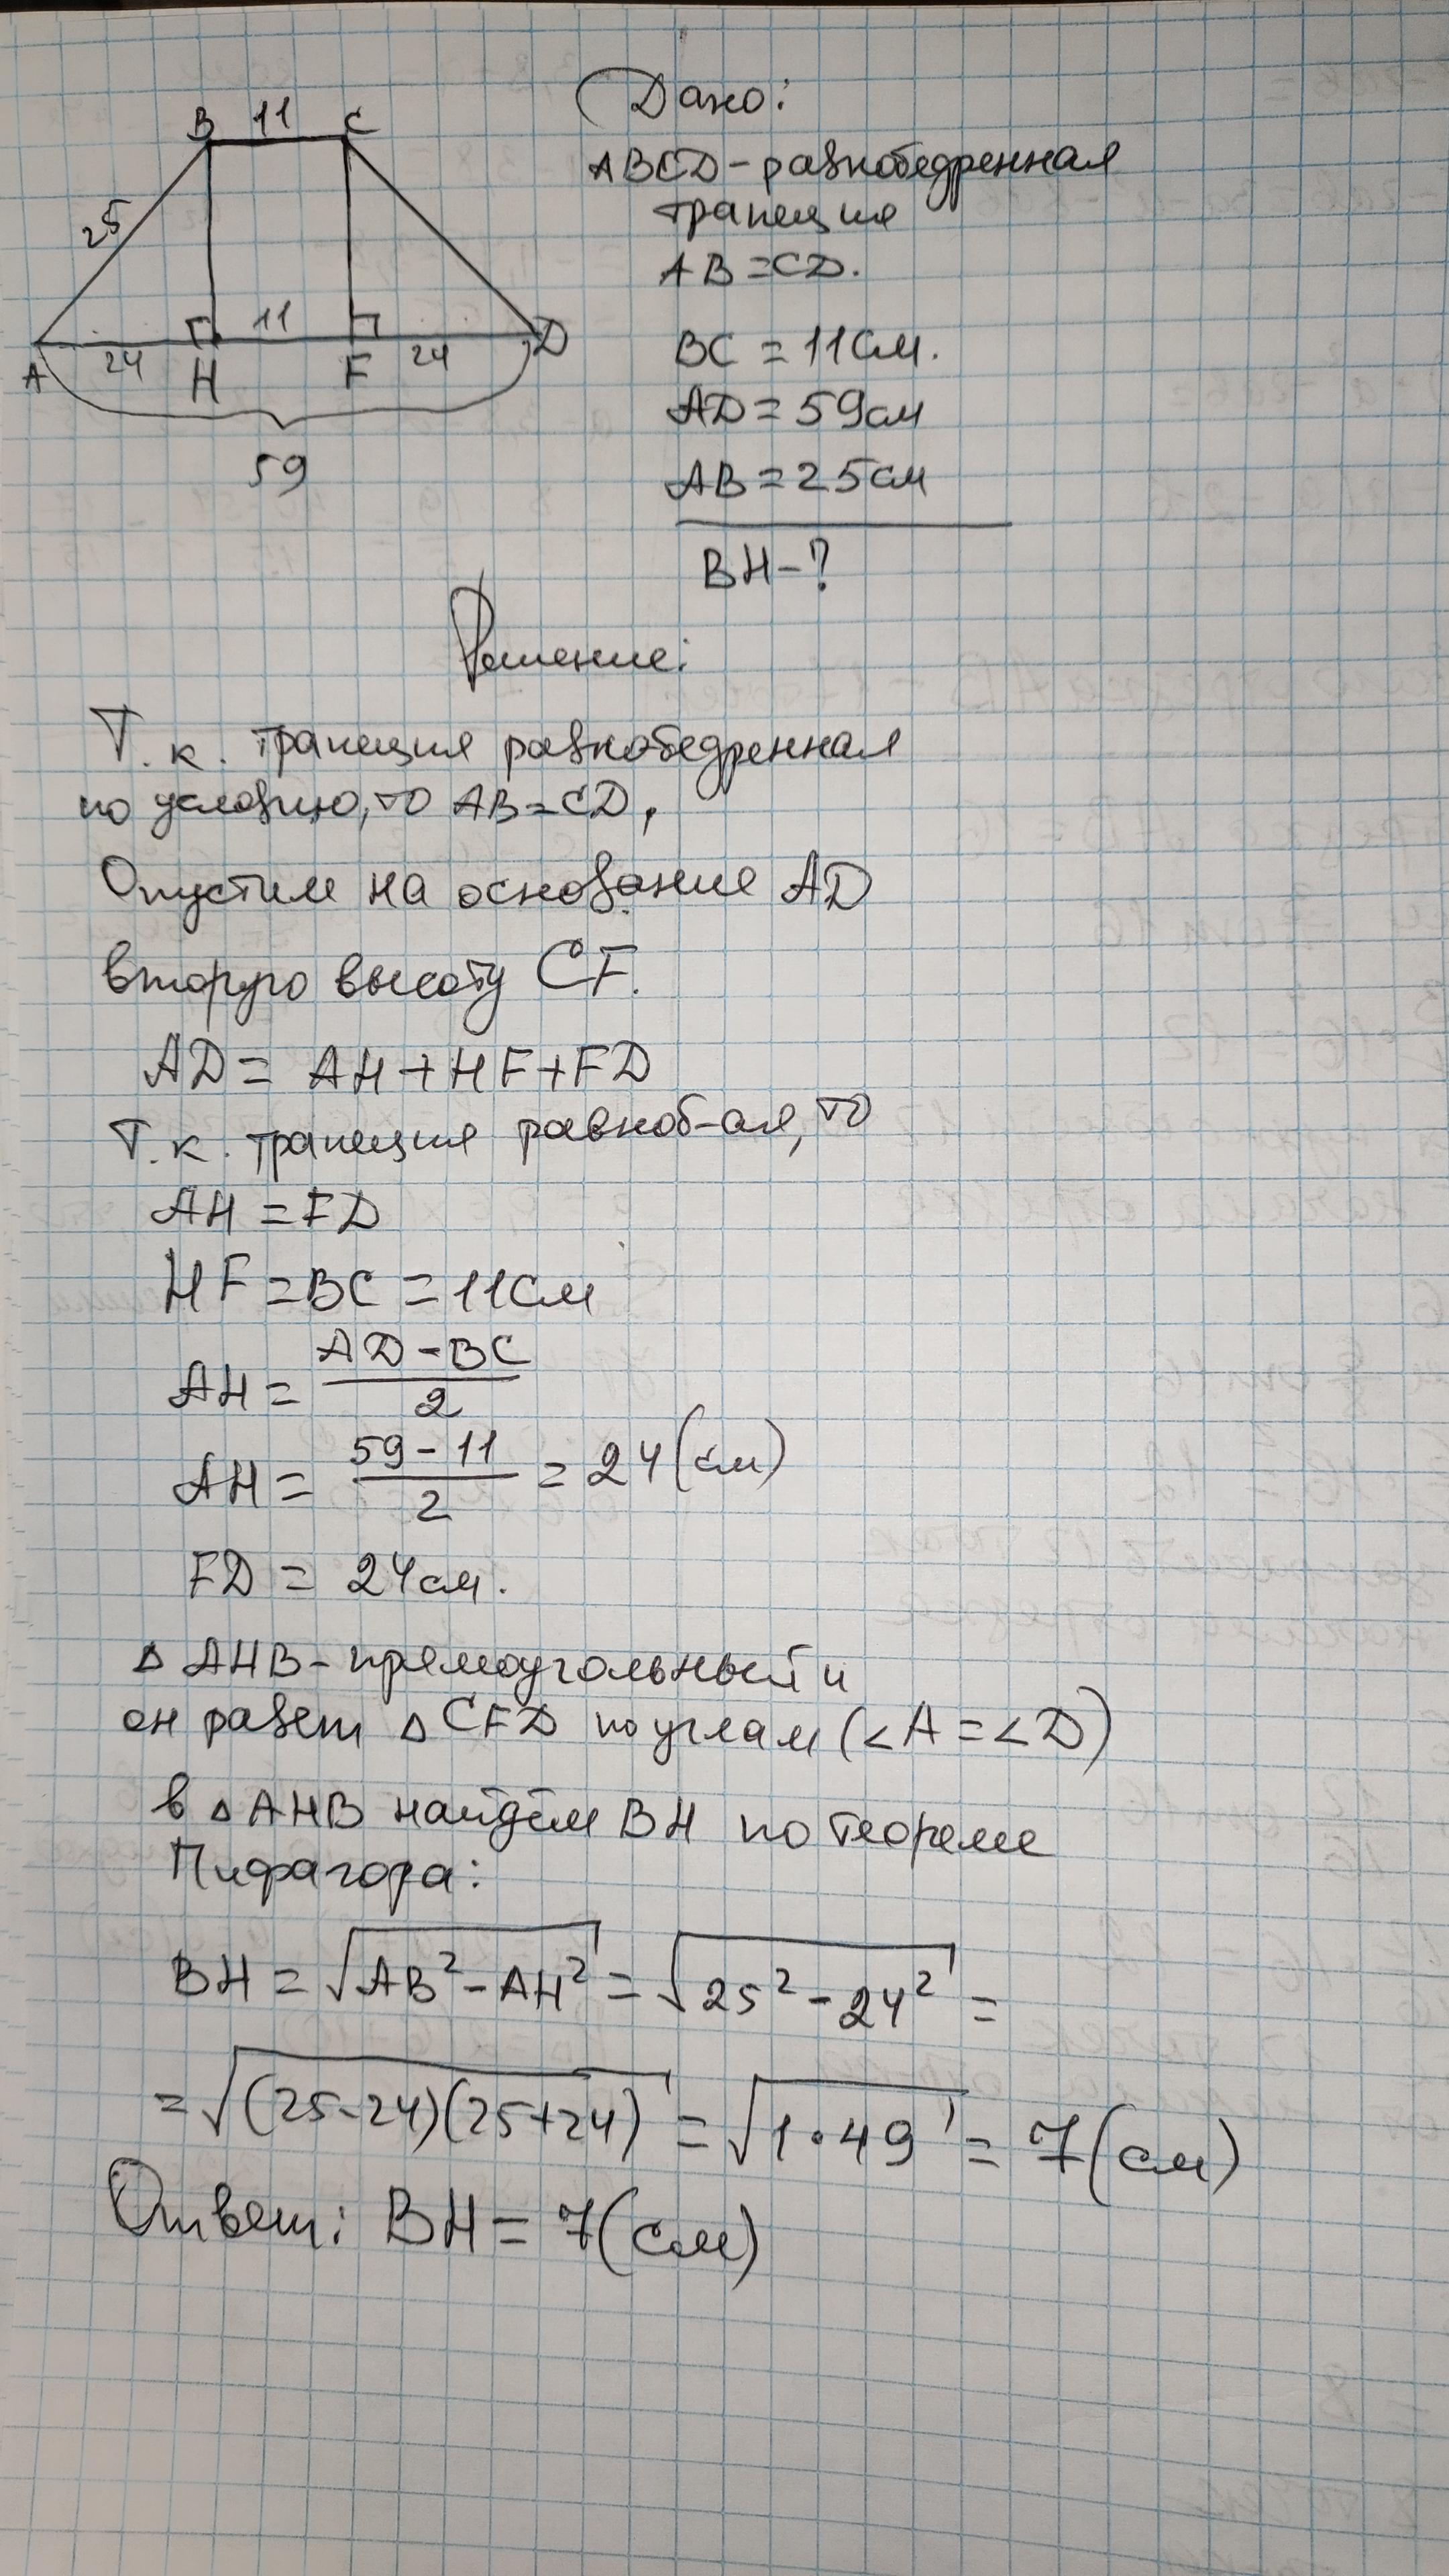 B 11 C
25
11
A 24 H F 24 D
59
Дано:
ABCD - равнобедренная
трапеция
AB = CD.
BC = 11 см.
AD = 59 см
AB = 25 см
BH - ?
Решение:
Т. к. трапеция равнобедренная
по условию, то AB = CD,
Опустим на основание AD
вторую высоту CF.
AD = AH + HF + FD
Т. к. трапеция равноб-ая, то
AH = FD
HF = BC = 11 см
AH = (AD - BC)/2
AH = (59 - 11)/2 = 24 (см)
FD = 24 см.
△ AHB - прямоугольный и
он равен △ CFD по углам (∠A = ∠D)
в △ AHB найдём BH по теореме
Пифагора:
BH = √(AB² - AH²) = √(25² - 24²) =
= √((25-24)(25+24)) = √(1·49) = 7 (см)
Ответ: BH = 7 (см)